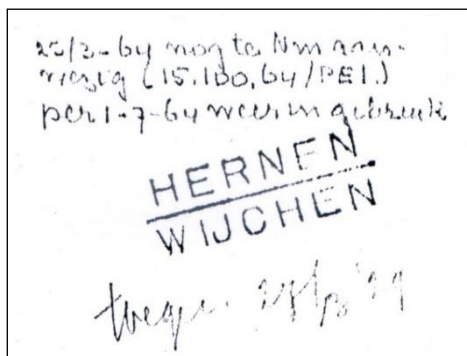 25/3-64 nog te Nm aan-
wezig (15.100.64/PEI.)
per 1-7-64 weer in gebruik
HERNEN
WIJCHEN